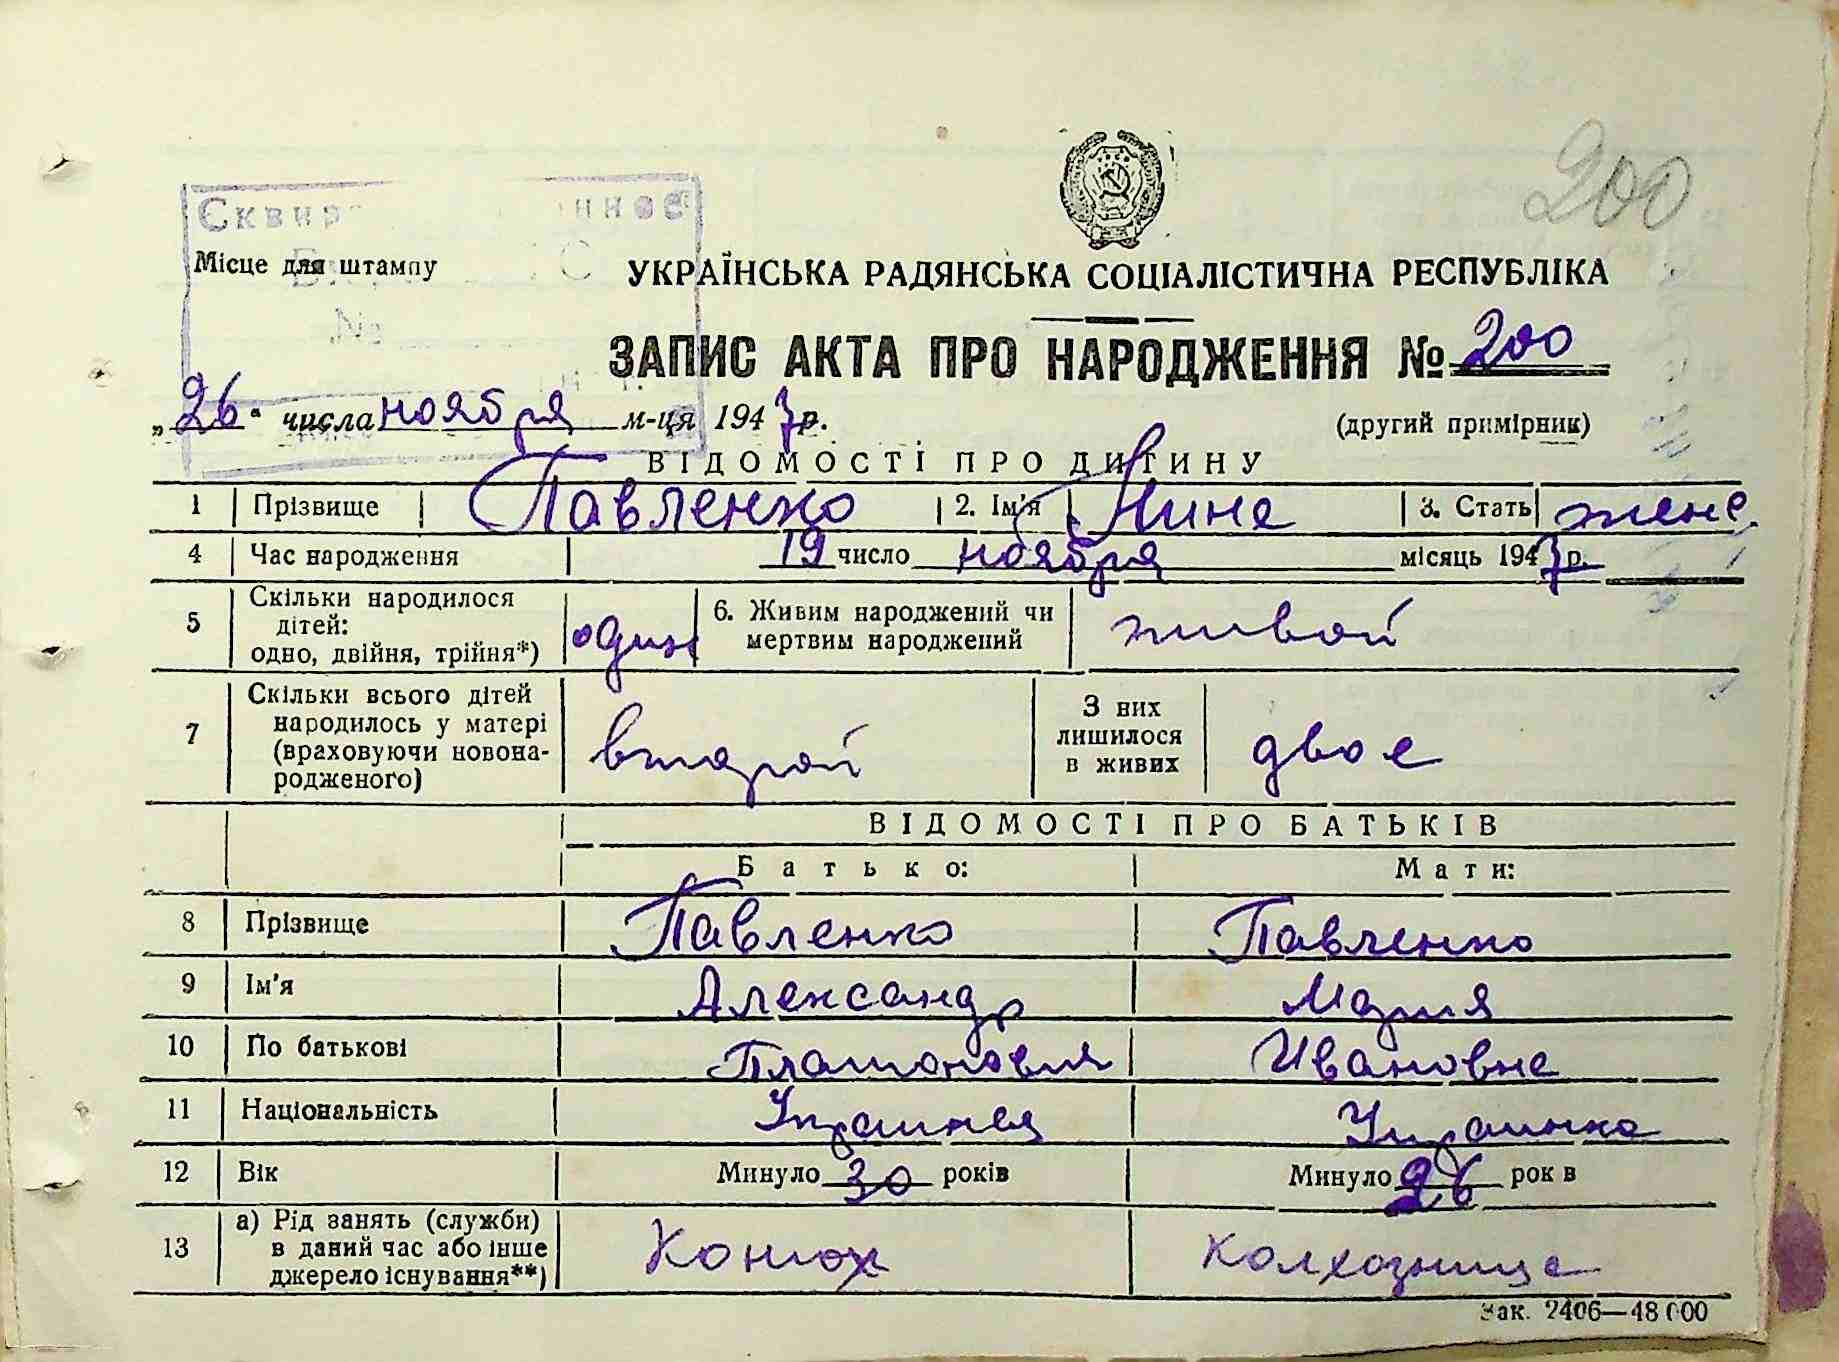 200
Сквир нное
Місце для штампу
№
УКРАЇНСЬКА РАДЯНСЬКА СОЦІАЛІСТИЧНА РЕСПУБЛІКА
ЗАПИС АКТА ПРО НАРОДЖЕННЯ № 200
„26“ числа ноября м-ця 1947 р.
(другий примірник)
ВІДОМОСТІ ПРО ДИТИНУ
1 Прізвище Павленко 2. Ім'я Нина 3. Стать жене.
4 Час народження 19 число ноября місяць 1947 р.
5 Скільки народилося дітей: одно, двійня, трійня*) один 6. Живим народжений чи мертвим народжений живой
7 Скільки всього дітей народилось у матері (враховуючи новонародженого) второй З них лишилося в живих двое
ВІДОМОСТІ ПРО БАТЬКІВ
Батько: Мати:
8 Прізвище Павленко Павленко
9 Ім'я Александр Мария
10 По батькові Платонович Ивановна
11 Національність Украинец Украинка
12 Вік Минуло 30 років Минуло 26 рок в
13 а) Рід занять (служби) в даний час або інше джерело існування**) Конюх Колхозница
Зак. 2406—48 000